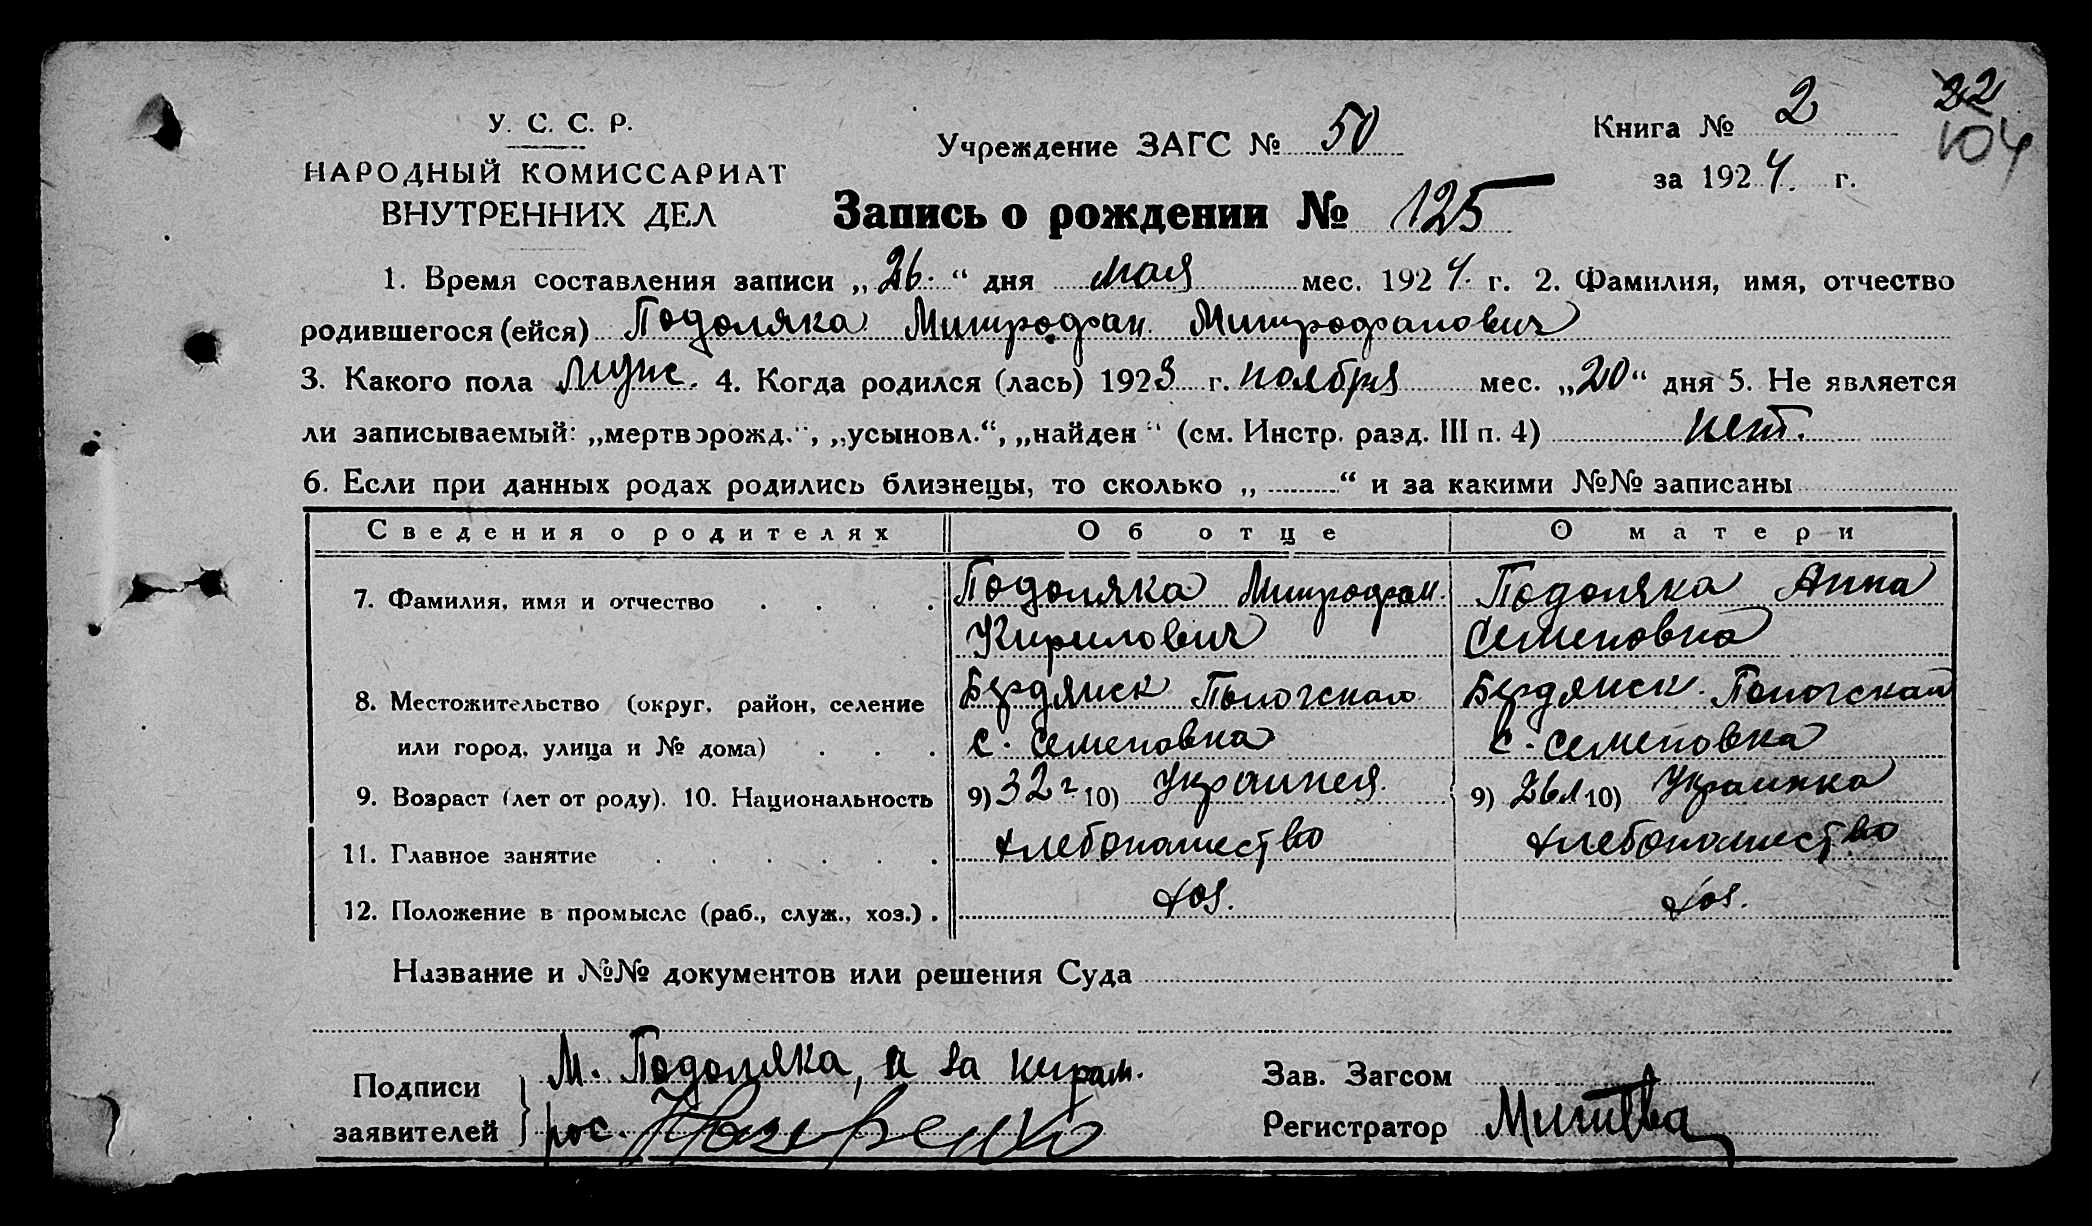 22
104
У. С. С. Р.
НАРОДНЫЙ КОМИССАРИАТ
ВНУТРЕННИХ ДЕЛ
Учреждение ЗАГС № 50
Книга № 2
за 1924. г.
Запись о рождении № 125
1. Время составления записи „26.“ дня мая мес. 1924. г. 2. Фамилия, имя, отчество
родившегося (ейся) Подоляка Митрофан. Митрофанович
3. Какого пола муж. 4. Когда родился (лась) 1923 г. ноября мес. „20“ дня 5. Не является
ли записываемый: „мертворожд.“, „усыновл.“, „найден“ (см. Инстр. разд. III п. 4) нет.
6. Если при данных родах родились близнецы, то сколько „ “ и за какими №№ записаны
Сведения о родителях Об отце О матери
7. Фамилия, имя и отчество Подоляка Митрофан. Подоляка Анна
Кирилович Семеновна
8. Местожительство (округ, район, селение Бердянск Пологскаго Бердянск. Пологскаго
или город, улица и № дома) с. Семеновка с. Семеновка
9. Возраст (лет от роду). 10. Национальность 9) 32 г 10) Украинец. 9) 26 л 10) Украинка
11. Главное занятие хлебопашество хлебопашество
12. Положение в промысле (раб., служ., хоз.) хоз. хоз.
Название и №№ документов или решения Суда
Подписи М. Подоляка, а за
заявителей рос.
Зав. Загсом
Регистратор